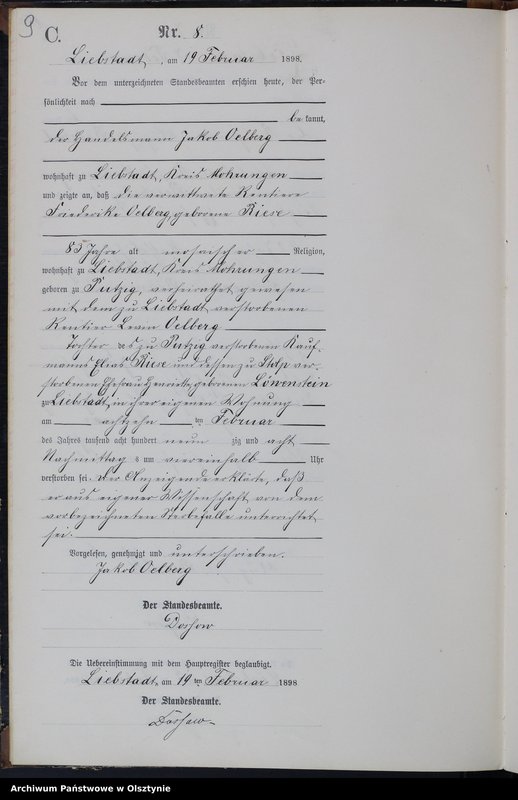 9
C.
Nr. 8.
Liebstadt, am 19 Februar 1898.
Vor dem unterzeichneten Standesbeamten erschien heute, der Per-
sönlichkeit nach
be kannt,
der Handelsmann Jakob Oelberg
wohnhaft zu Liebstadt, Kreis Mohrungen
und zeigte an, daß die verwittwete Rentiere
Friederike Oelberg, geborene Riese
85 Jahre alt mosaischer Religion,
wohnhaft zu Liebstadt, Kreis Mohrungen
geboren zu Putzig, verheirathet gewesen
mit dem zu Liebstadt verstorbenen
Rentier Oelberg
Tochter des zu Putzig verstorbenen Kauf-
manns Elias Riese und dessen zu Stolp ver-
storbenen Ehefrau Henriette, geborenen Löwenstein
zu Liebstadt, in ihrer eigenen Wohnung
am achtzehn ten Februar
des Jahres tausend acht hundert neun zig und acht
Nachmittag s um viereinhalb Uhr
verstorben sei. Der Anzeigende erklärte, daß
er aus eigener Wissenschaft von dem
vorbezeichneten Sterbefalle unterrichtet
sei.
Vorgelesen, genehmigt und unterschrieben.
Jakob Oelberg
Der Standesbeamte.
Die Uebereinstimmung mit dem Hauptregister beglaubigt.
Liebstadt, am 19 ten Februar 1898
Der Standesbeamte.
Archiwum Państwowe w Olsztynie